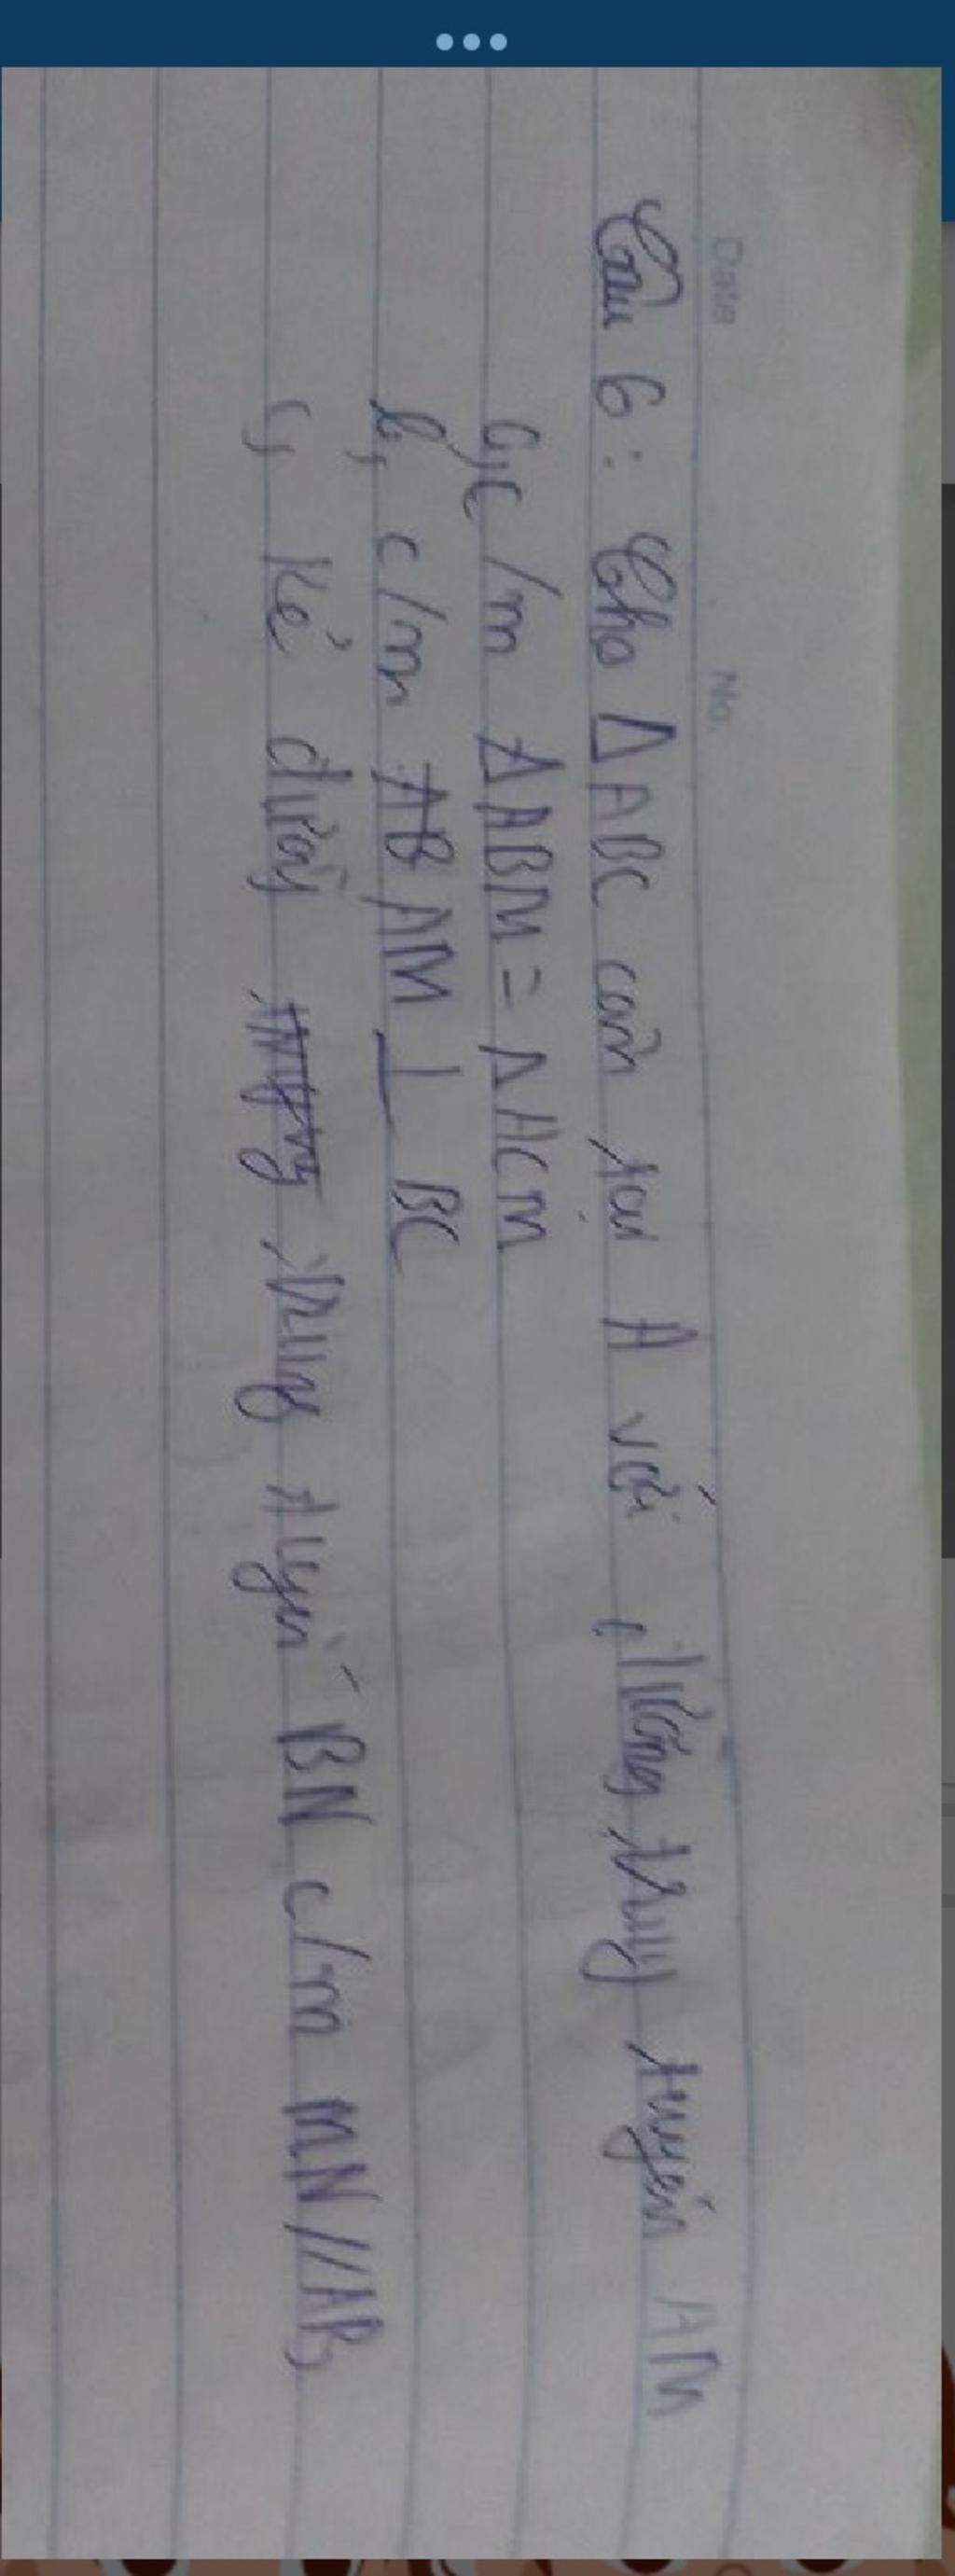 Date No.
Câu 6: Cho Δ ABC cân tại A với đường trung tuyến AM
a, c/m Δ ABM = Δ ACM
b, c/m AM ⊥ BC
c, Kẻ đường trung tuyến BN c/m MN // AB